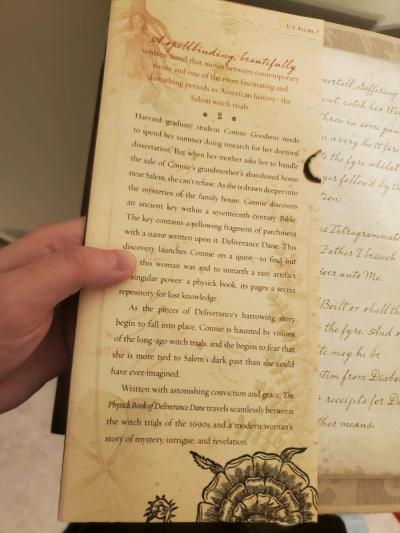 U.S. $25.99
A spellbinding, beautifully
written novel that moves between contemporary
times and one of the most fascinating and
disturbing periods in American history–the
Salem witch trials.
Harvard graduate student Connie Goodwin needs
to spend her summer doing research for her doctoral
dissertation. But when her mother asks her to handle
the sale of Connie's grandmother's abandoned home
near Salem, she can't refuse. As she is drawn deeper into
the mysteries of the family house, Connie discovers
an ancient key within a seventeenth-century Bible.
The key contains a yellowing fragment of parchment
with a name written upon it: Deliverance Dane. This
discovery launches Connie on a quest—to find out
this woman was and to unearth a rare artifact
singular power: a physick book, its pages a secret
repository for lost knowledge.
As the pieces of Deliverance's harrowing story
begin to fall into place, Connie is haunted by visions
of the long-ago witch trials, and she begins to fear that
she is more tied to Salem's dark past than she could
have ever imagined.
Written with astonishing conviction and grace, The
Physick Book of Deliverance Dane travels seamlessly between
the witch trials of the 1690s and a modern woman's
story of mystery, intrigue, and revelation.
mortall Suffering
catch his Wa
throw in some pin
a very hott fire
the fyre whilst
follow'd by the
tion:
Tetragrammato
Father I beseech
over unto Me.
Built so shall th
the fyre. And s
te may be
tim from Diabol
receipts for De
ther means.